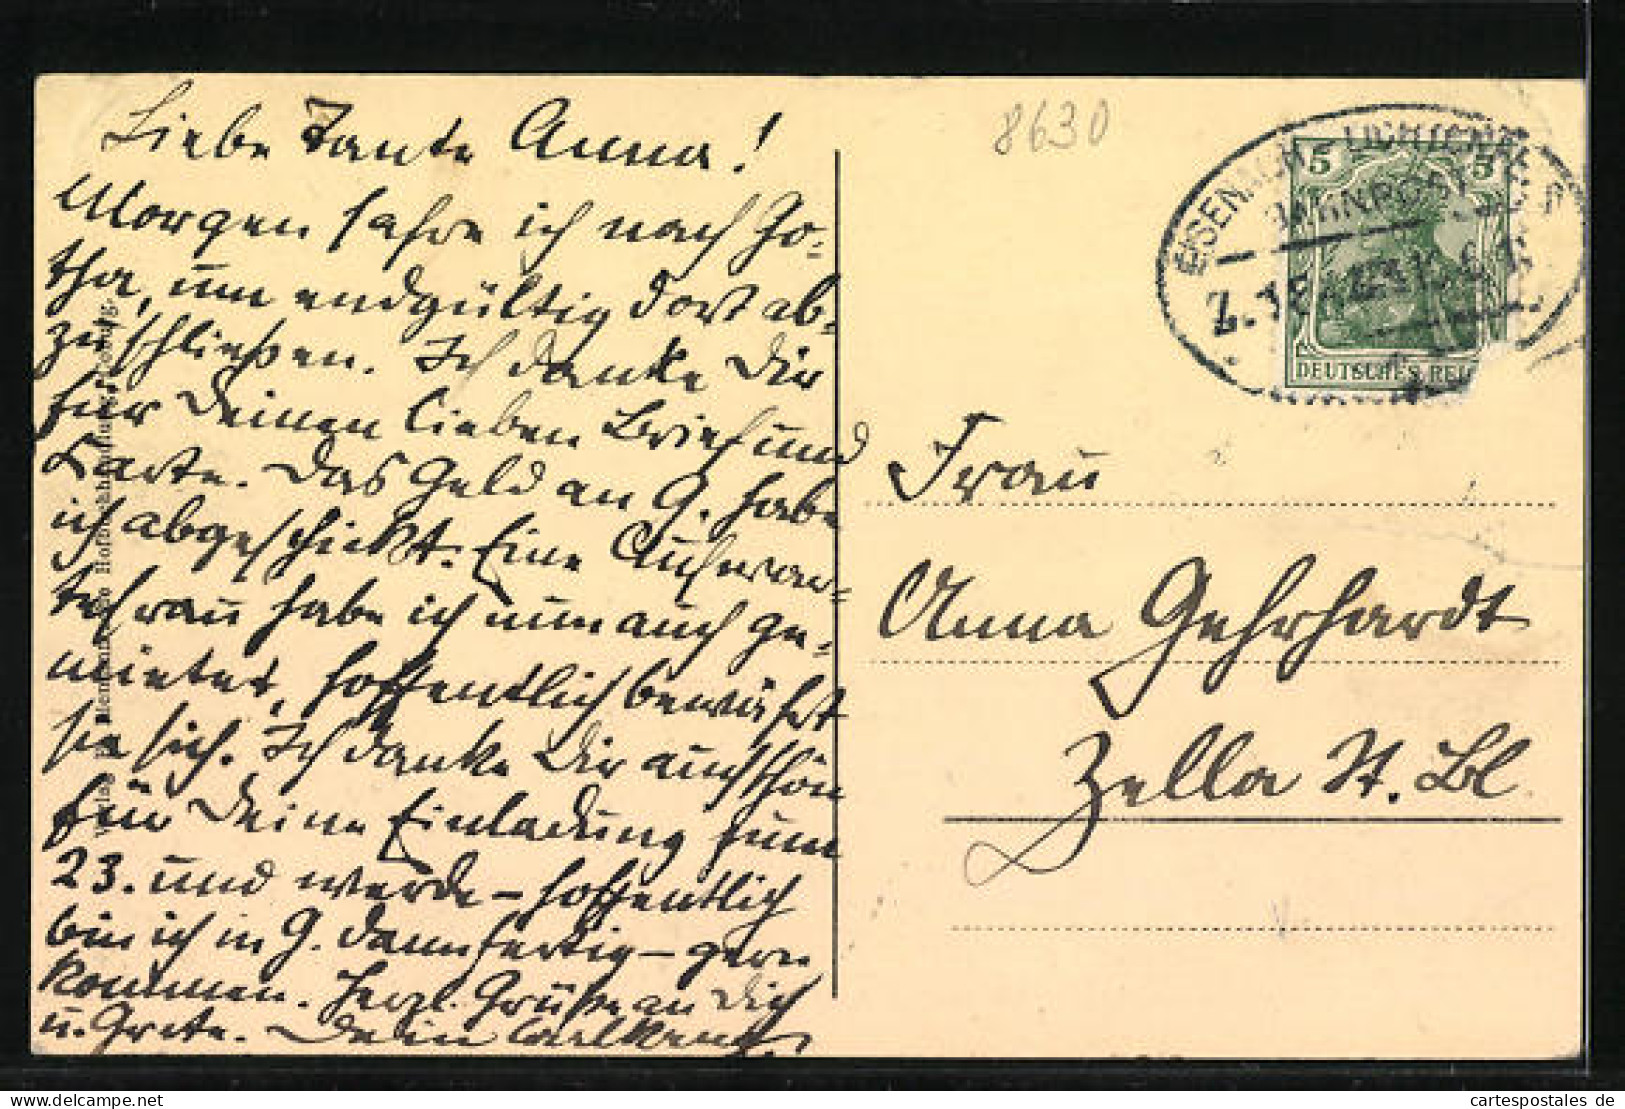 Liebe Tante Anna!
Morgen fahre ich nach Go-
tha, um endgültig dort ab-
zuschließen. Ich danke Dir
für Deinen lieben Brief und
Karte. Das Geld an G. habe
ich abgeschickt. Eine Aufwar-
tefrau habe ich nun auch ge-
mietet, hoffentlich bewährt
sie sich. Ich danke Dir auch schön
für Deine Einladung zum
23. und werde – hoffentlich
bin ich in G. dann fertig – gern
kommen. Herzl. Grüße an Dich
u. Grete. Dein
Verlag
8630
EISENACH LICHTENFELS
BAHNPOST
Z.
5 5
DEUTSCHES REICH
Frau
Anna Gehrhardt
Zella St. Bl.
cartespostales de